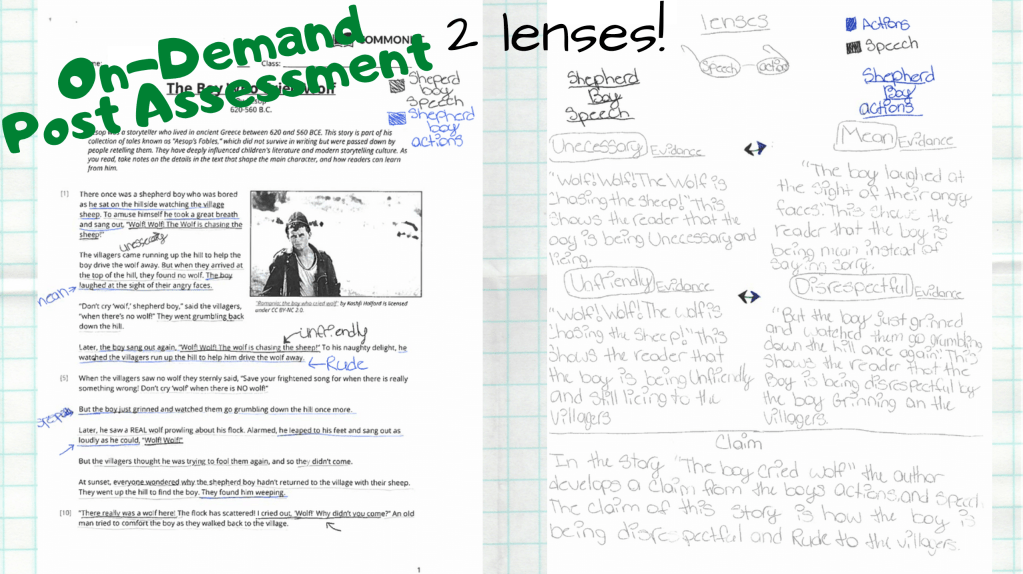 On-Demand
Post Assessment
2 lenses!
COMMONL
Class:
The Boy Who Cried Wolf
620-560 B.C.
Sheperd
boy
Speech
Shepherd
boy
actions
Aesop was a storyteller who lived in ancient Greece between 620 and 560 BCE. This story is part of his
collection of tales known as "Aesop's Fables," which did not survive in writing but were passed down by
people retelling them. They have deeply influenced children's literature and modern storytelling culture. As
you read, take notes on the details in the text that shape the main character, and how readers can learn
from him.
[1] There once was a shepherd boy who was bored
as he sat on the hillside watching the village
sheep. To amuse himself he took a great breath
and sang out, "Wolf! Wolf! The Wolf is chasing the
sheep!"
The villagers came running up the hill to help the
boy drive the wolf away. But when they arrived at
the top of the hill, they found no wolf. The boy
laughed at the sight of their angry faces.
mean
"Don't cry 'wolf,' shepherd boy," said the villagers,
"when there's no wolf!" They went grumbling back
down the hill.
"Romania: the boy who cried wolf" by Kashfi Halford is licensed
under CC BY-NC 2.0.
unfriendly
Later, the boy sang out again, "Wolf! Wolf! The wolf is chasing the sheep!" To his naughty delight, he
watched the villagers run up the hill to help him drive the wolf away.
Rude
[5] When the villagers saw no wolf they sternly said, "Save your frightened song for when there is really
something wrong! Don't cry 'wolf' when there is NO wolf!"
But the boy just grinned and watched them go grumbling down the hill once more.
Later, he saw a REAL wolf prowling about his flock. Alarmed, he leaped to his feet and sang out as
loudly as he could, "Wolf! Wolf!"
But the villagers thought he was trying to fool them again, and so they didn't come.
At sunset, everyone wondered why the shepherd boy hadn't returned to the village with their sheep.
They went up the hill to find the boy. They found him weeping.
[10] "There really was a wolf here! The flock has scattered! I cried out, 'Wolf!' Why didn't you come?" An old
man tried to comfort the boy as they walked back to the village.
1
lenses
Speech
action
Actions
Speech
Shepherd
Boy
Speech
Shepherd
Boy
actions
Unecessary Evidance
"Wolf! Wolf! The Wolf is
chosing the sheep!" This
shows the reader that the
boy is being Unecessary and
licing.
Mean Evidance
"The boy laughed at
the sight of their angry
faces." This shows the
reader that the boy is
being mean instead of
saying sorry.
Unfriendly Evidance
"Wolf! Wolf! The wolf is
chosing the Sheep!" This
shows the reader that
the boy is being Unfriendly
and still licing to the
villagers
Disrespectful Evidance
"But the boy just grinned
and watched them go grumbling
down the hill once again." This
shows the reader that the
Boy is being disrespectful by
the boy Grinning an the
villagers.
Claim
In the story "The boy cried wolf" the author
develops a claim from the boys actions, and speech.
The claim of this story is how the boy is
being disrespectful and Rude to the villagers.